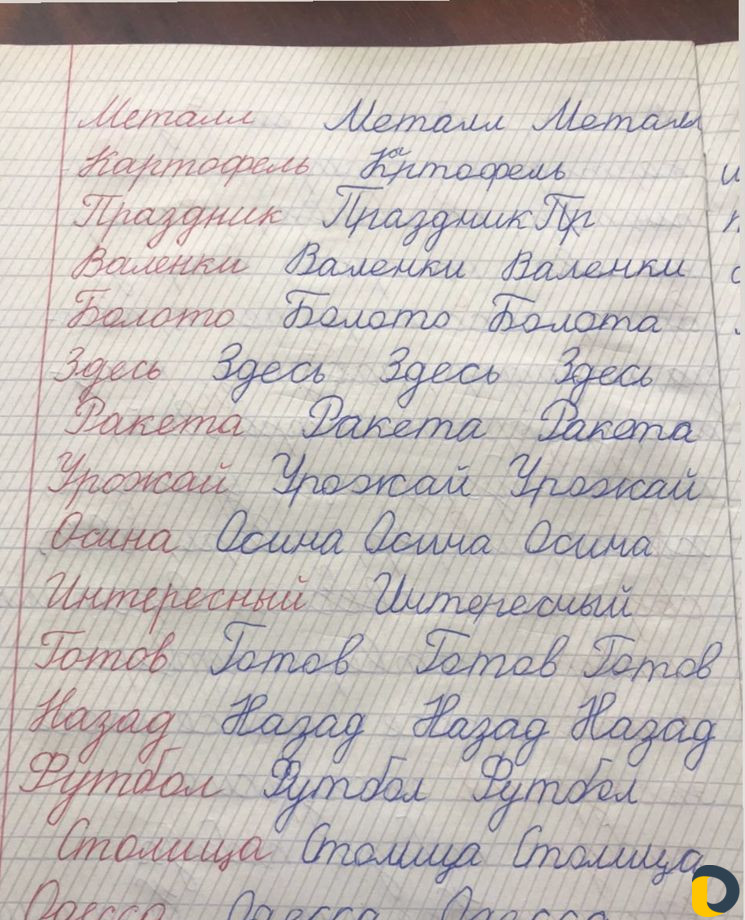 Металл Металл Металл
Картофель Картофель
Праздник Праздник Пр
Валенки Валенки Валенки
Болото Болото Болота
Здесь Здесь Здесь Здесь
Ракета Ракета Ракета
Урожай Урожай Урожай
Осина Осина Осина Осина
Интересный Интересный
Готов Готов Готов Готов
Назад Назад Назад Назад
Футбол Футбол Футбол
Столица Столица Столица
Одесса Одесса Одесса